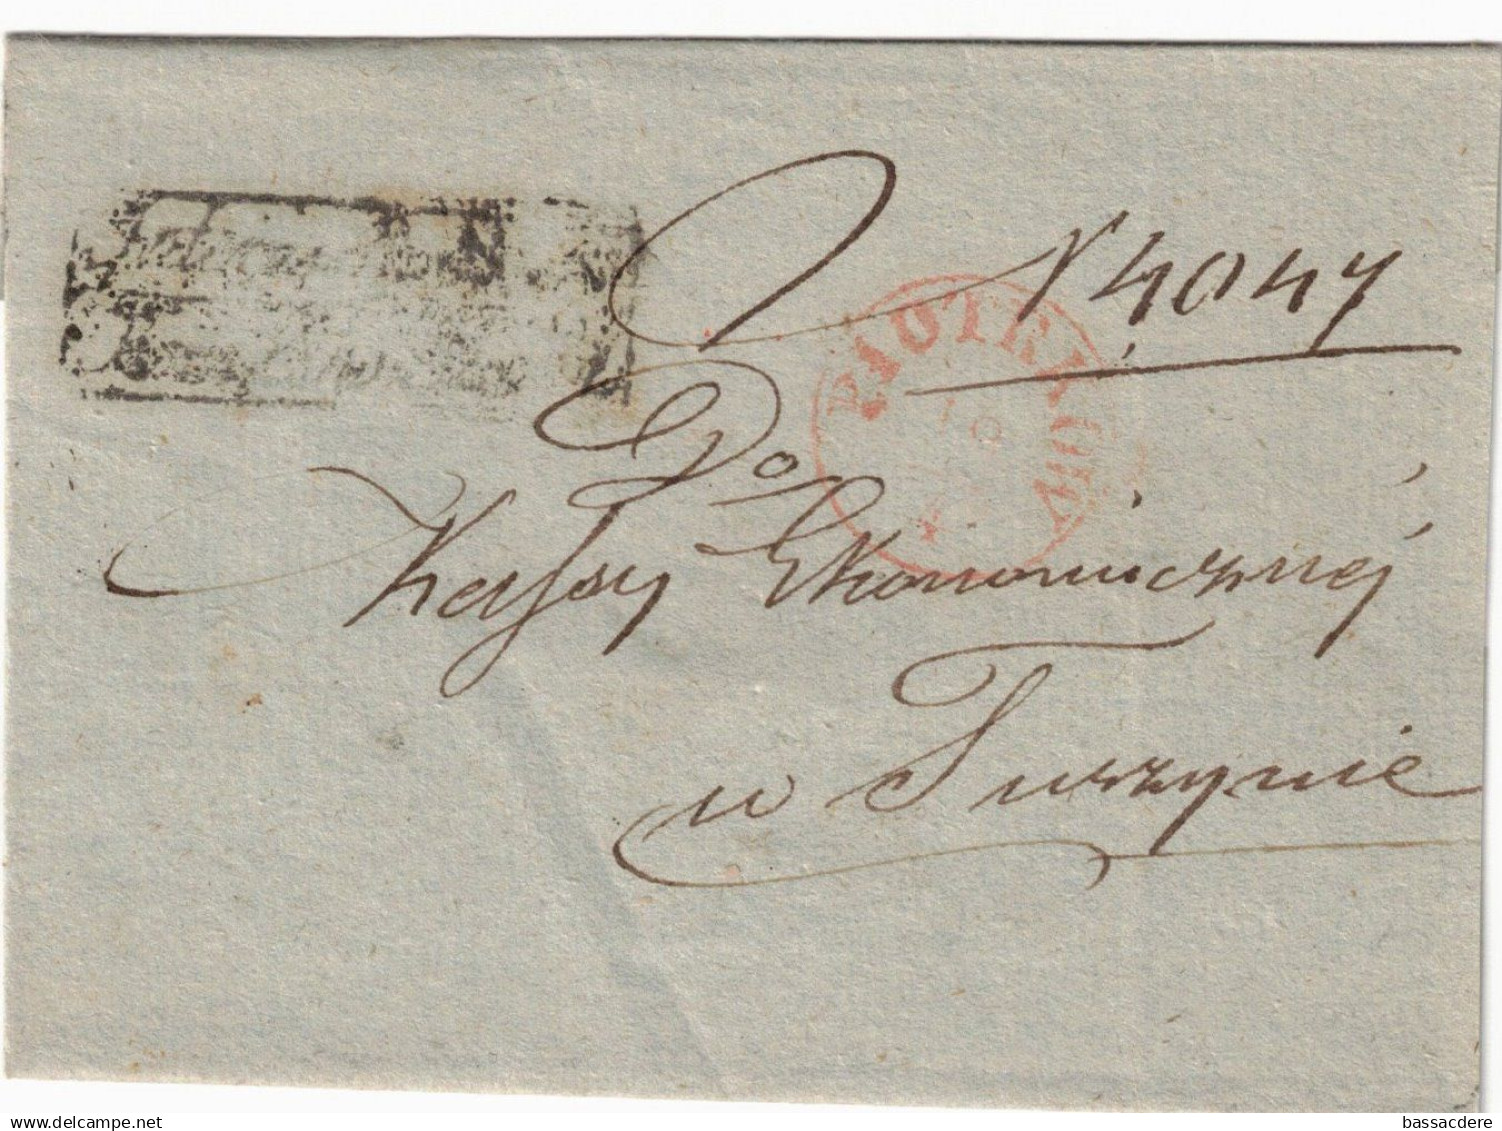 N 4047
PIOTRKOW
Do
Kassy Ekonomiczney
w Tuszynie
www.delcampe.net
bassacdere